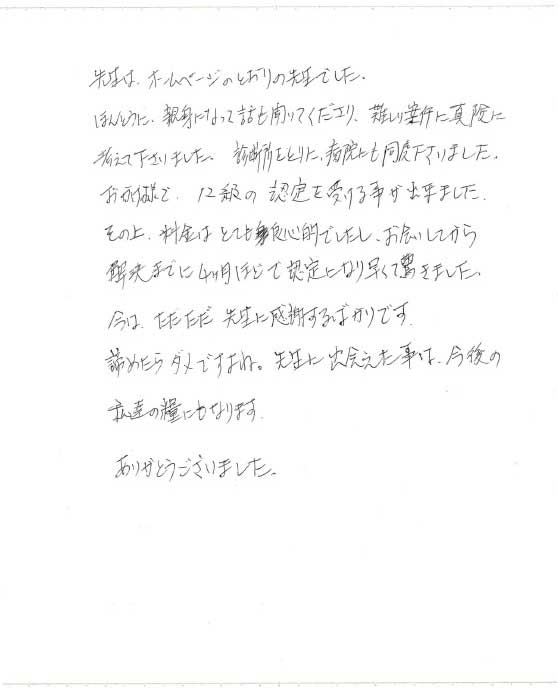 先生は、ホームページのとおりの先生でした。
ほんとうに、親身になって話も聞いてくださり、難しい案件に真険に
考えて下さいました。診断所をとりに、病院にも同席下さいました。
お陰様で、12級の認定を受ける事が出来ました。
その上、料金はとても良心的でしたし、お会いしてから
解決までに4ヶ月ほどで認定になり早くて驚きました。
今は、ただただ先生に感謝するばかりです。
諦めたらダメですよね。先生に出会えた事は、今後の
私達の糧にもなります。
ありがとうございました。